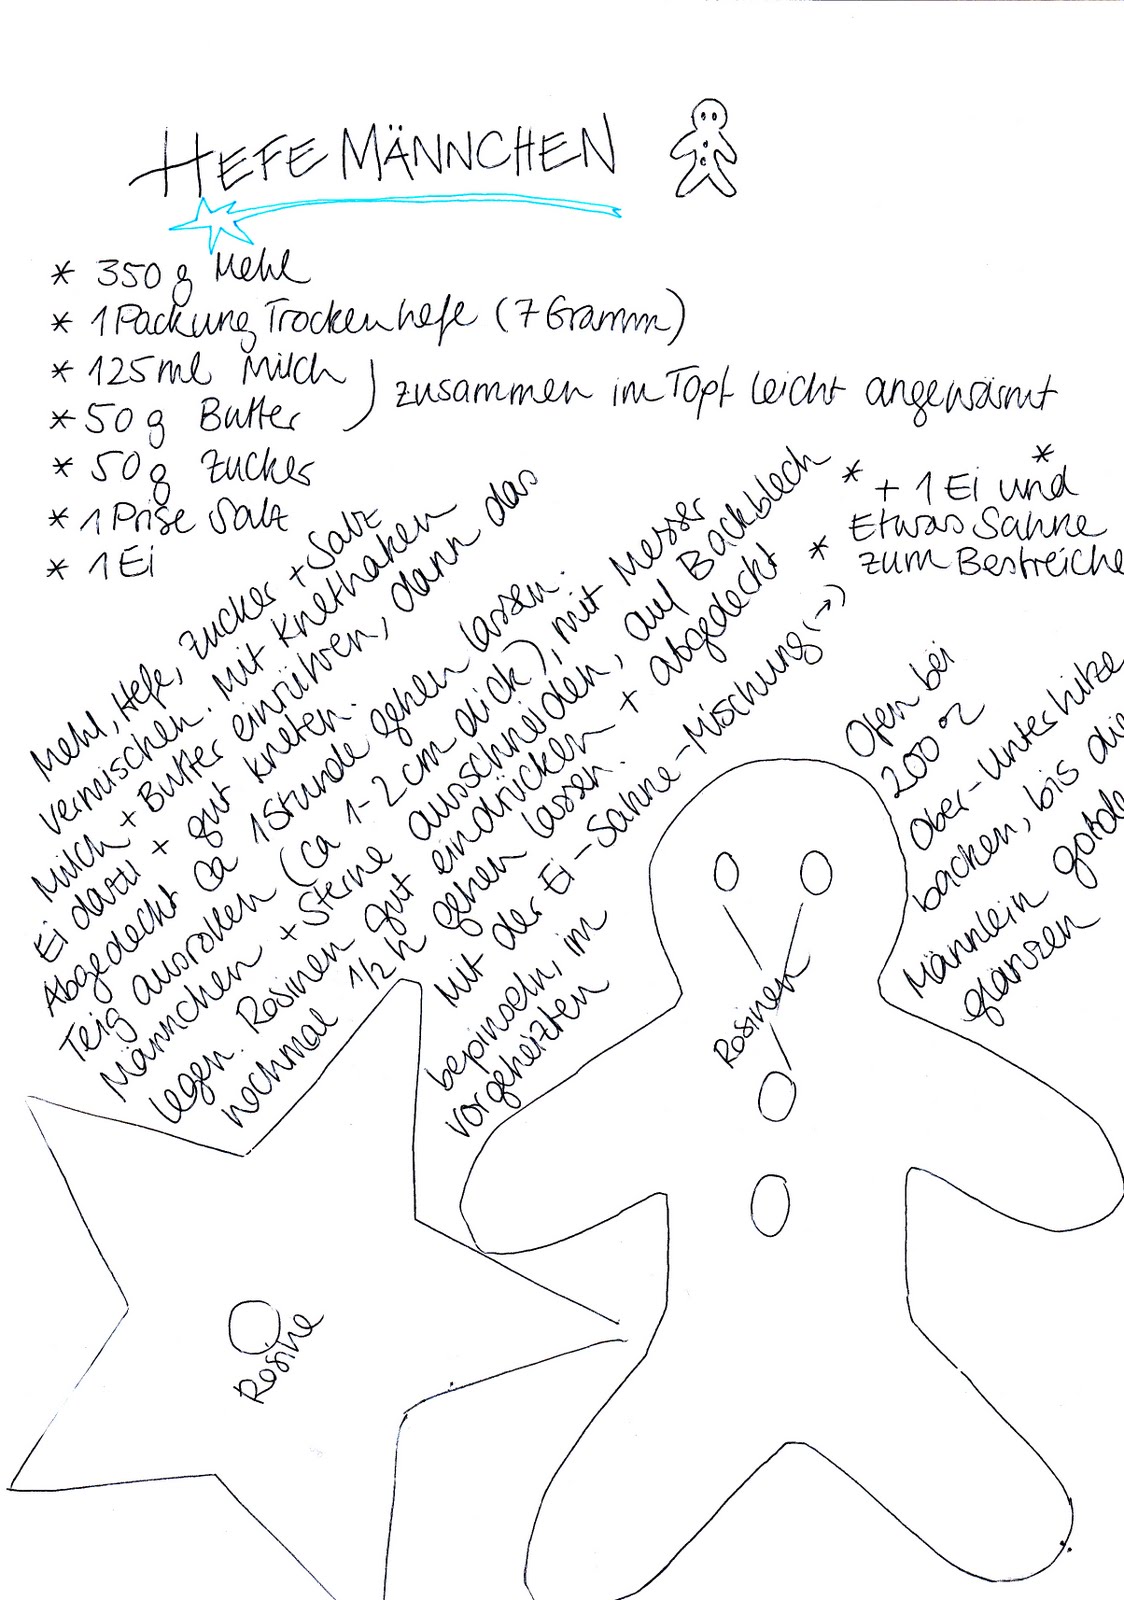 HEFEMÄNNCHEN
* 350 g Mehl
* 1 Packung Trockenhefe (7 Gramm)
* 125 ml Milch
* 50 g Butter
zusammen im Topf leicht angewärmt
* 50 g Zucker
* 1 Prise Salz
* 1 Ei
* + 1 Ei und *
Etwas Sahne
* zum Bestreiche
Mehl, Hefe, Zucker + Salz
vermischen. Mit Knethaken
Milch + Butter einrühren, dann das
Ei dazu + gut kneten.
Abgedeckt ca 1 Stunde gehen lassen.
Teig ausrollen (ca 1-2 cm dick), mit Messer
Männchen + Sterne ausschneiden, auf Backblech
legen. Rosinen gut eindrücken + abgedeckt
nochmal 1/2 h gehen lassen.
Mit der Ei-Sahne-Mischung (→)
bepinseln, im
vorgeheizten
Ofen bei
200 °C
Ober-Unterhitze
backen, bis die
Männlein golde
glänzen
Rosinen
Rosine